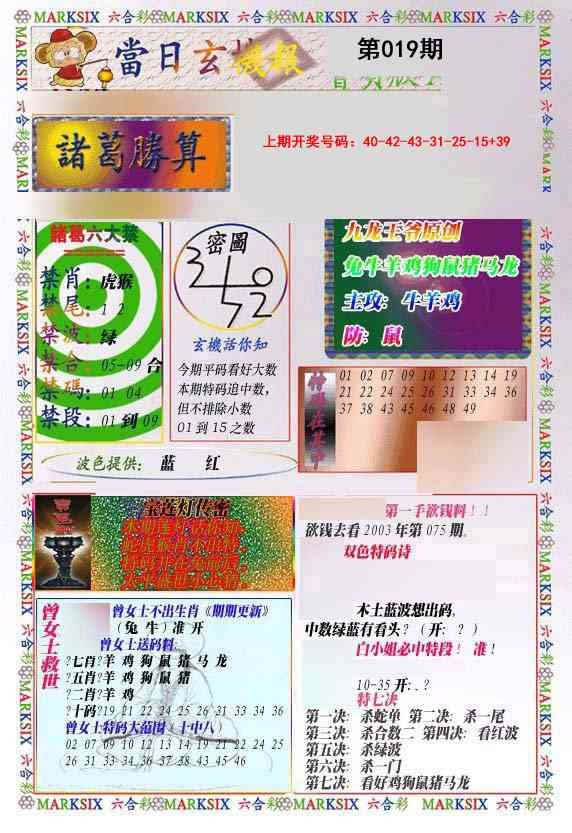 MARKSIX 六合彩 MARKSIX 六合彩 MARKSIX 六合彩 MARKSIX 六合彩
當日玄機报
第019期
諸葛勝算
上期开奖号码：40-42-43-31-25-15+39
諸葛六大禁
禁肖：虎猴
禁尾：1 2
禁波：绿
禁合：05-09 合
禁碼：01 04
禁段：01 到 09
密圖
玄機活你知
今期平码看好大数
本期特码追中数，
但不排除小数
01 到 15 之数
九龙王爷原创
兔牛羊鸡狗鼠猪马龙
主攻：牛羊鸡
防：鼠
01 02 07 09 10 12 13 14 19
21 22 24 25 26 31 33 34 36
37 38 43 45 46 48 49
波色提供： 蓝 红
宝莲灯传密
第一手欲钱料！！
欲钱去看 2003 年第 075 期。
双色特码诗
木土蓝波想出码，
中数绿蓝有看头？（开：？）
白小姐必中特段！ 准！
10-35 开：.？
特七决
第一决：杀蛇单 第二决：杀一尾
第三决：杀合数二 第四决：看红波
第五决：杀绿波
第六决：杀一门
第七决：看好鸡狗鼠猪马龙
曾女士救世
曾女士不出生肖《期期更新》
（兔 牛）准 开
曾女士送码料:
?七肖?羊 鸡 狗 鼠 猪 马 龙
?五肖?羊 鸡 狗 鼠 猪
?二肖?羊 鸡
?十码?19 21 22 24 25 26 31 33 34 36
曾女士特码大范围（十中八）
02 07 09 10 12 13 14 19 21 22 24 25
26 31 33 34 36 37 38 43 45 46
MARKSIX 六合彩 MARKSIX 六合彩 MARKSIX 六合彩 MARKSIX 六合彩